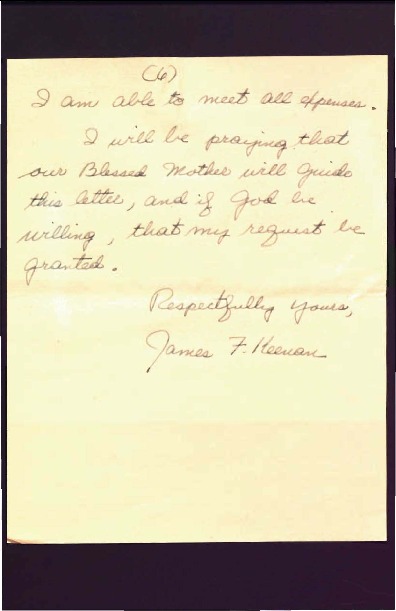 (6)
I am able to meet all expenses.
I will be praying that
our Blessed Mother will guide
this letter, and if God be
willing, that my request be
granted.
Respectfully yours,
James F. Keenan